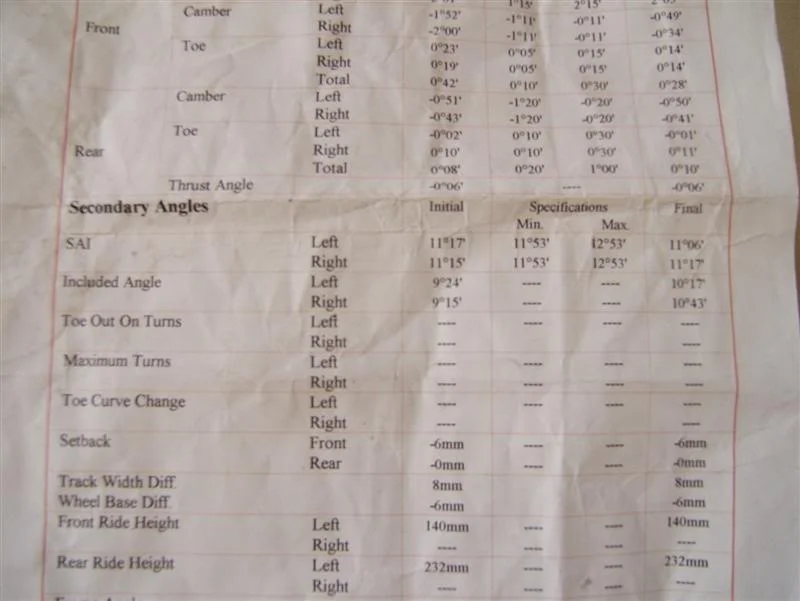 Camber Left -1°52' -1°11' -0°11' -0°49'
Front Right -2°00' -1°11' -0°11' -0°34'
Toe Left 0°23' 0°05' 0°15' 0°14'
Right 0°19' 0°05' 0°15' 0°14'
Total 0°42' 0°10' 0°30' 0°28'
Camber Left -0°51' -1°20' -0°20' -0°50'
Right -0°43' -1°20' -0°20' -0°41'
Toe Left -0°02' 0°10' 0°30' -0°01'
Rear Right 0°10' 0°10' 0°30' 0°11'
Total 0°08' 0°20' 1°00' 0°10'
Thrust Angle -0°06' ---- -0°06'
Secondary Angles Initial Specifications Final
Min. Max.
SAI Left 11°17' 11°53' 12°53' 11°06'
Right 11°15' 11°53' 12°53' 11°17'
Included Angle Left 9°24' ---- ---- 10°17'
Right 9°15' ---- ---- 10°43'
Toe Out On Turns Left ---- ---- ---- ----
Right ---- ----
Maximum Turns Left ---- ---- ---- ----
Right ---- ---- ---- ----
Toe Curve Change Left ---- ---- ---- ----
Right ---- ---- ---- ----
Setback Front -6mm ---- ---- -6mm
Rear -0mm ---- ---- -0mm
Track Width Diff. 8mm 8mm
Wheel Base Diff. -6mm -6mm
Front Ride Height Left 140mm ---- ---- 140mm
Right ---- ---- ---- ----
Rear Ride Height Left 232mm ---- ---- 232mm
Right ---- ---- ---- ----